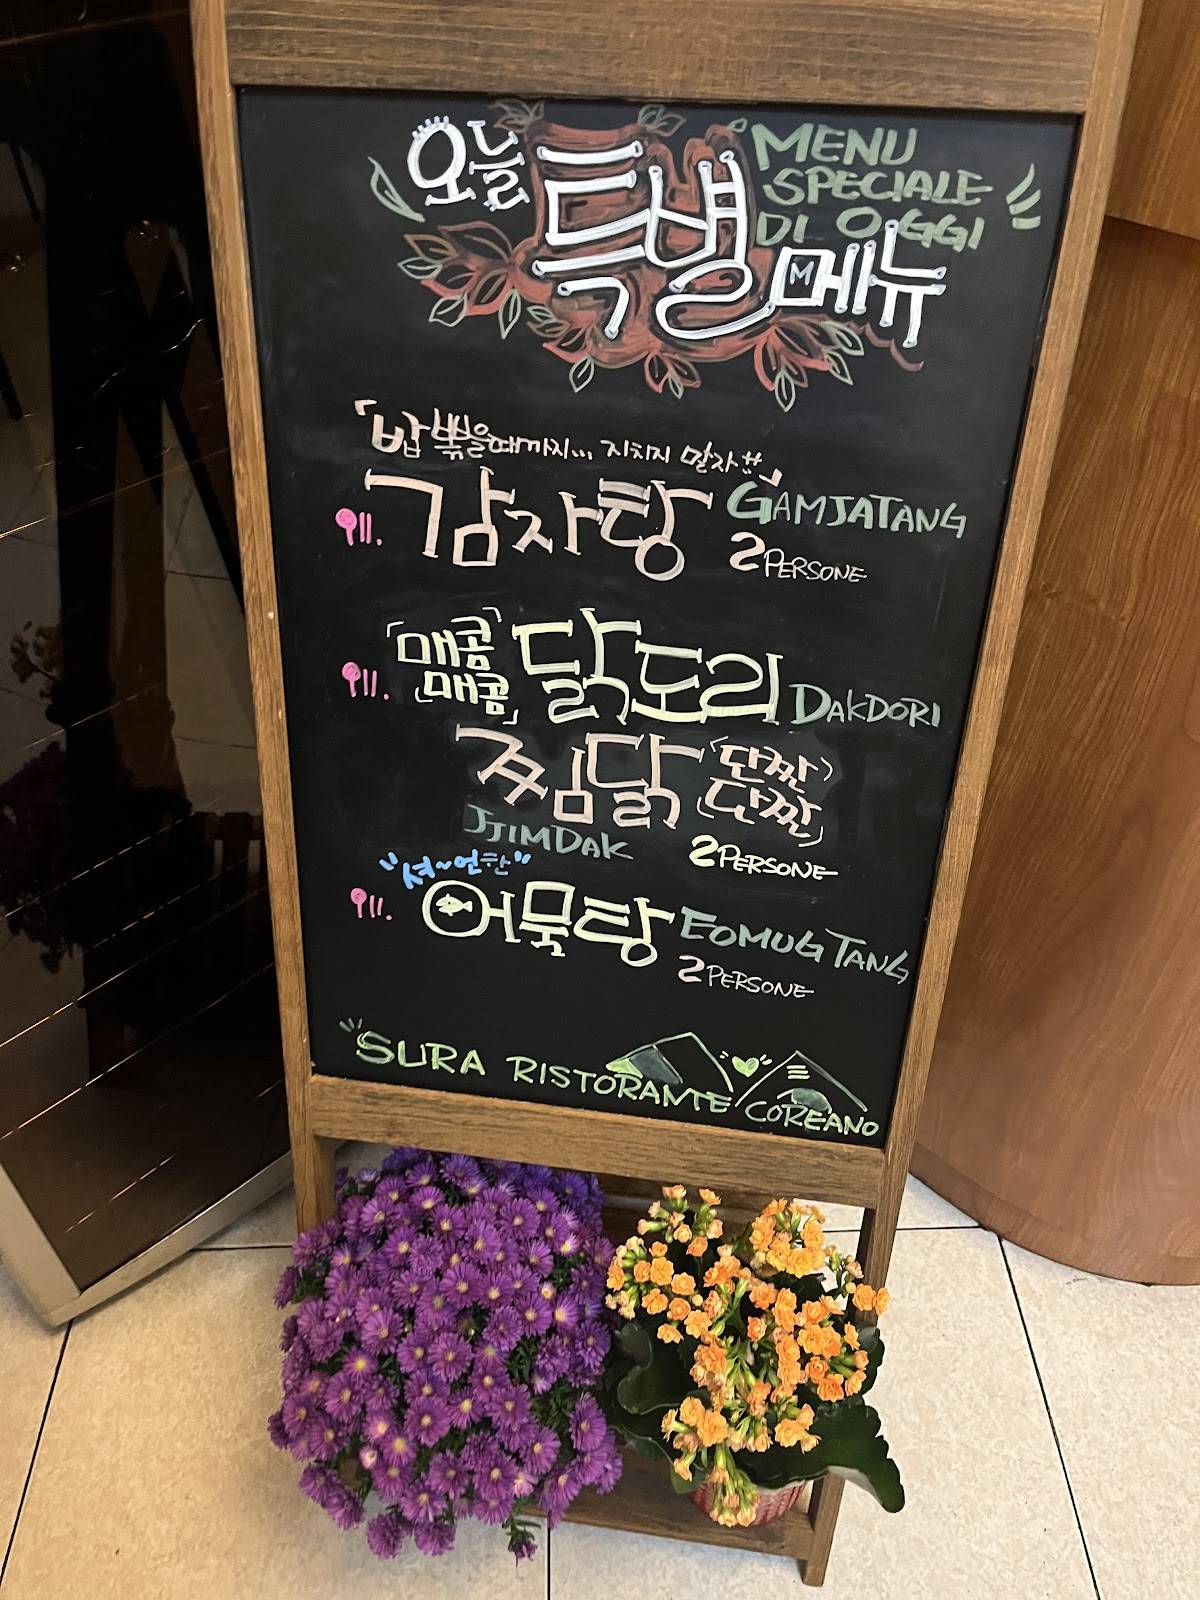 오늘 특별 메뉴
MENU
SPECIALE
DI OGGI
「밥 볶을때까지... 지치지 말자!!」
감자탕 GAMJATANG
2 PERSONE
「매콤 매콤」 닭도리 DAKDORI
찜닭 「단짠 단짠」
JJIMDAK 2 PERSONE
"셔~언한"
어묵탕 EOMUG TANG
2 PERSONE
SURA RISTORANTE COREANO